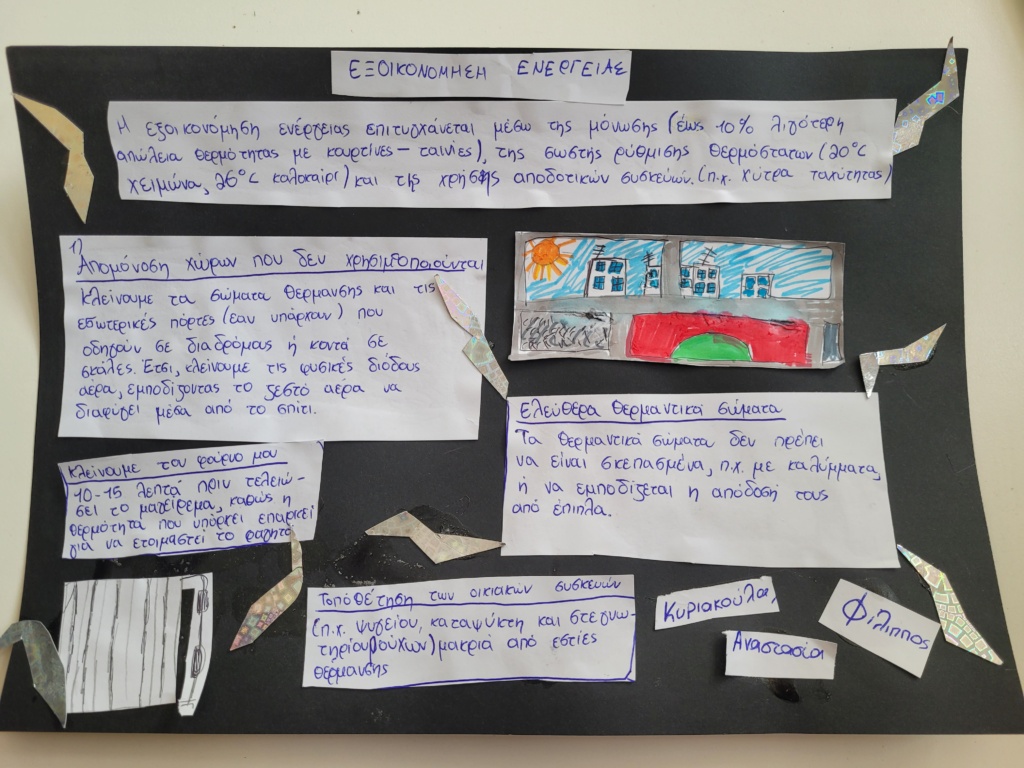 ΕΞΟΙΚΟΝΟΜΗΣΗ ΕΝΕΡΓΕΙΑΣ
Η εξοικονόμηση ενέργειας επιτυγχάνεται μέσω της μόνωσης (έως 10% λιγότερη
απώλεια θερμότητας με κουρτίνες - ταινίες), της σωστής ρύθμισης θερμοστατων (20°C
χειμώνα, 26°C καλοκαίρι) και της χρήσης αποδοτικών συσκευών. (π.χ. χύτρα ταχύτητας)
1)
Απομόνοση χώρων που δεν χρησιμοποιούνται
Κλείνουμε τα σώματα θέρμανσης και τις
εσωτερικές πόρτες (εαν υπάρχουν) που
οδηγούν σε διαδρόμους ή κοντά σε
σκάλες. Έτσι, κλείνουμε τις φυσικές διόδους
αέρα, εμποδίζοντας το ζεστό αέρα να
διαφύγει μέσα από το σπίτι.
Ελεύθερα θερμαντικά σώματα
Τα θερμαντικά σώματα δεν πρέπει
να είναι σκεπασμένα, π.χ. με καλύμματα,
ή να εμποδίζεται η απόδοσή τους
από έπιπλα.
Κλείνουμε τον φούρνο μου
10-15 λεπτά πριν τελειώ-
σει το μαγείρεμα, καθώς η
θερμότητα που υπάρχει επαρκεί
για να ετοιμαστεί το φαγητό
Τοποθέτηση των οικιακών συσκευών
(π.χ. ψυγείου, καταψύκτη και στεγνω-
τηρίου ρούχων) μακριά από εστίες
θέρμανσης
Κυριακούλα,
Αναστασία
Φίλιππος